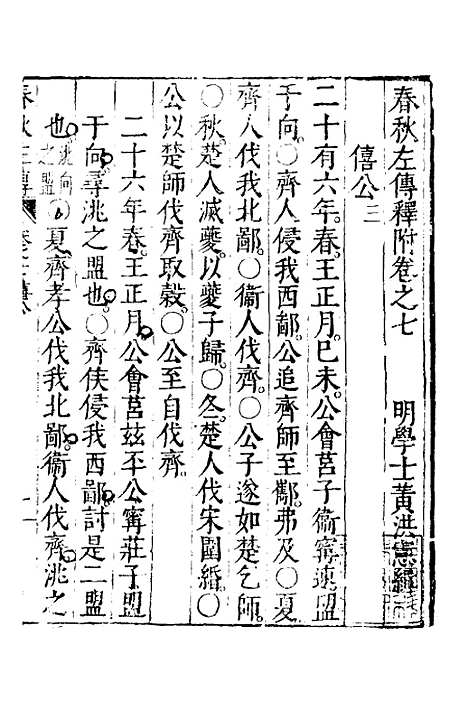 春秋左傳釋附卷之七　明學士黃洪憲
僖公三
二十有六年春王正月己未公會莒子衞甯速盟
于向〇齊人侵我西鄙公追齊師至酅弗及〇夏
齊人伐我北鄙〇衞人伐齊〇公子遂如楚乞師
〇秋楚人滅夔以夔子歸〇冬楚人伐宋圍緡〇
公以楚師伐齊取穀〇公至自伐齊
二十六年春王正月公會莒玆丕公甯莊子盟
于向尋洮之盟也〇齊侯侵我西鄙討是二盟
也洮向之盟〇夏齊孝公伐我北鄙衞人伐齊洮之